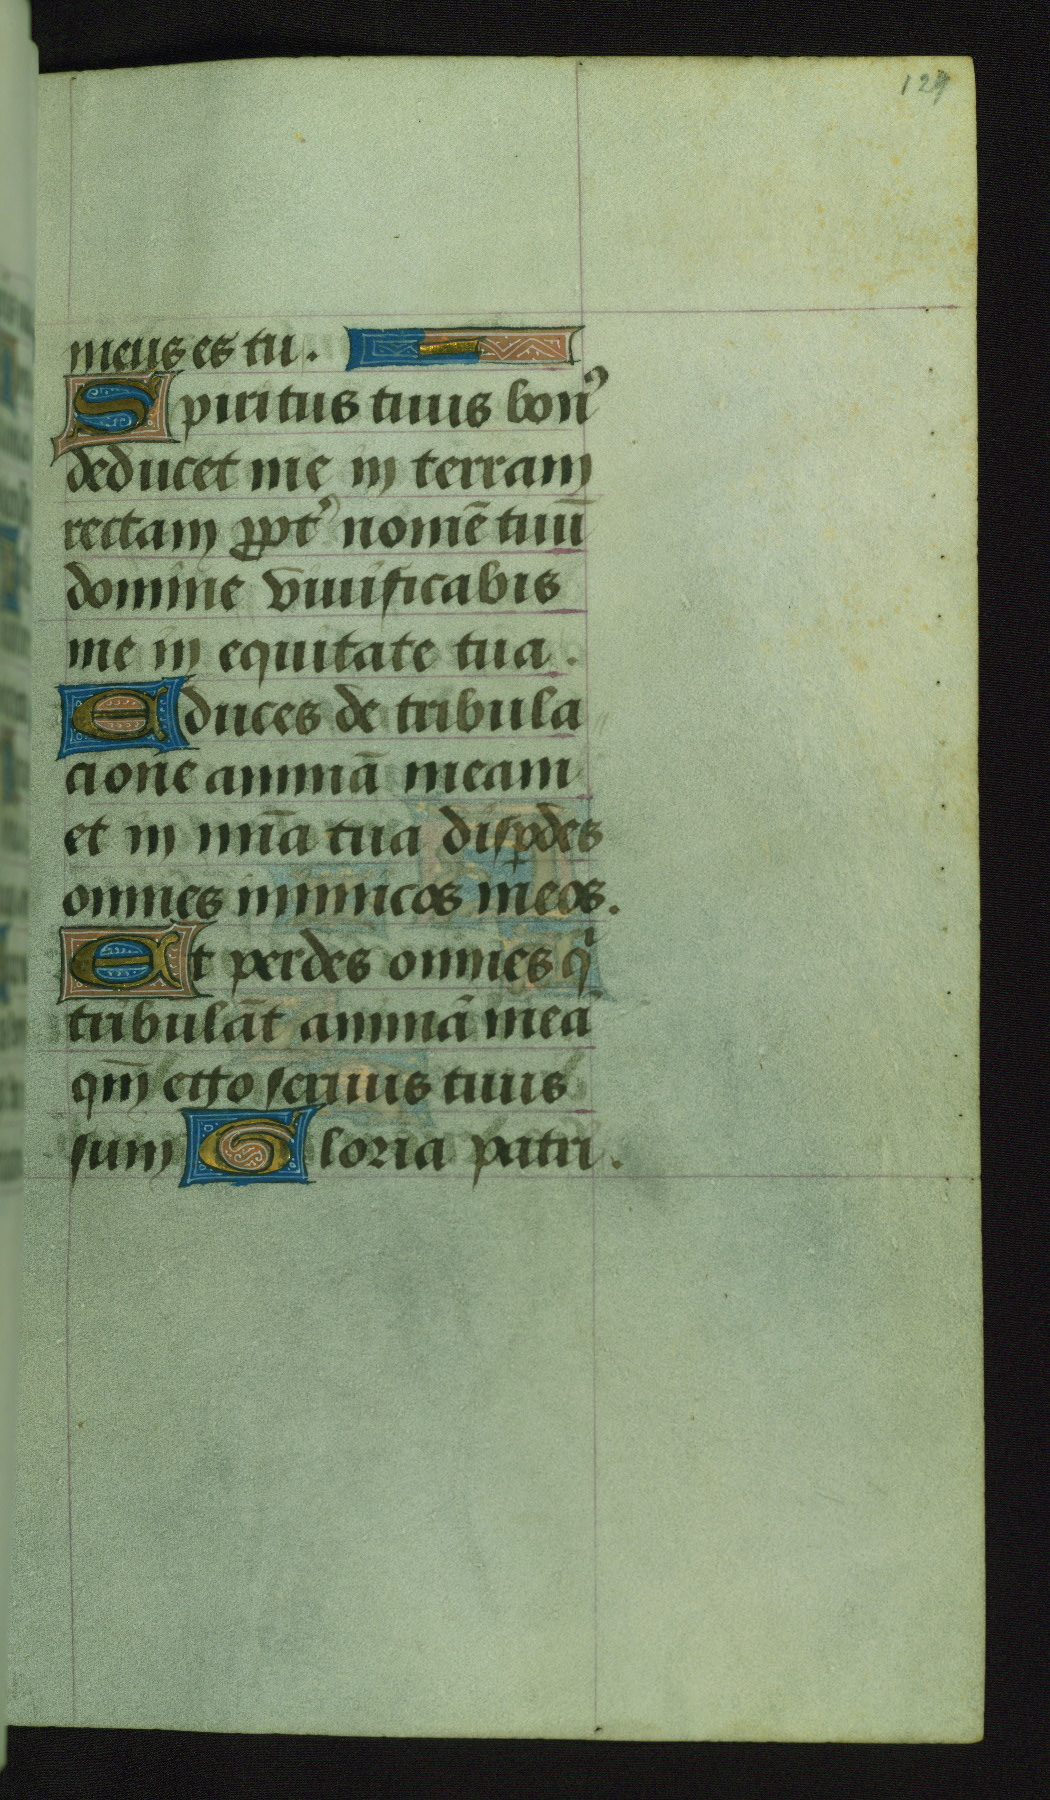 124
meus es tu.
Spiritus tuus bonꝰ
deducet me in terram
rectam ꝓptꝰ nomē tuū
domine viuificabis
me in equitate tua.
Educes de tribula
cione animā meam
et in mīa tua disꝑdes
omnes inimicos meos.
Et perdes omnes qͥ
tribulāt animā meā
qm̄ ego seruus tuus
sum Gloria patri.